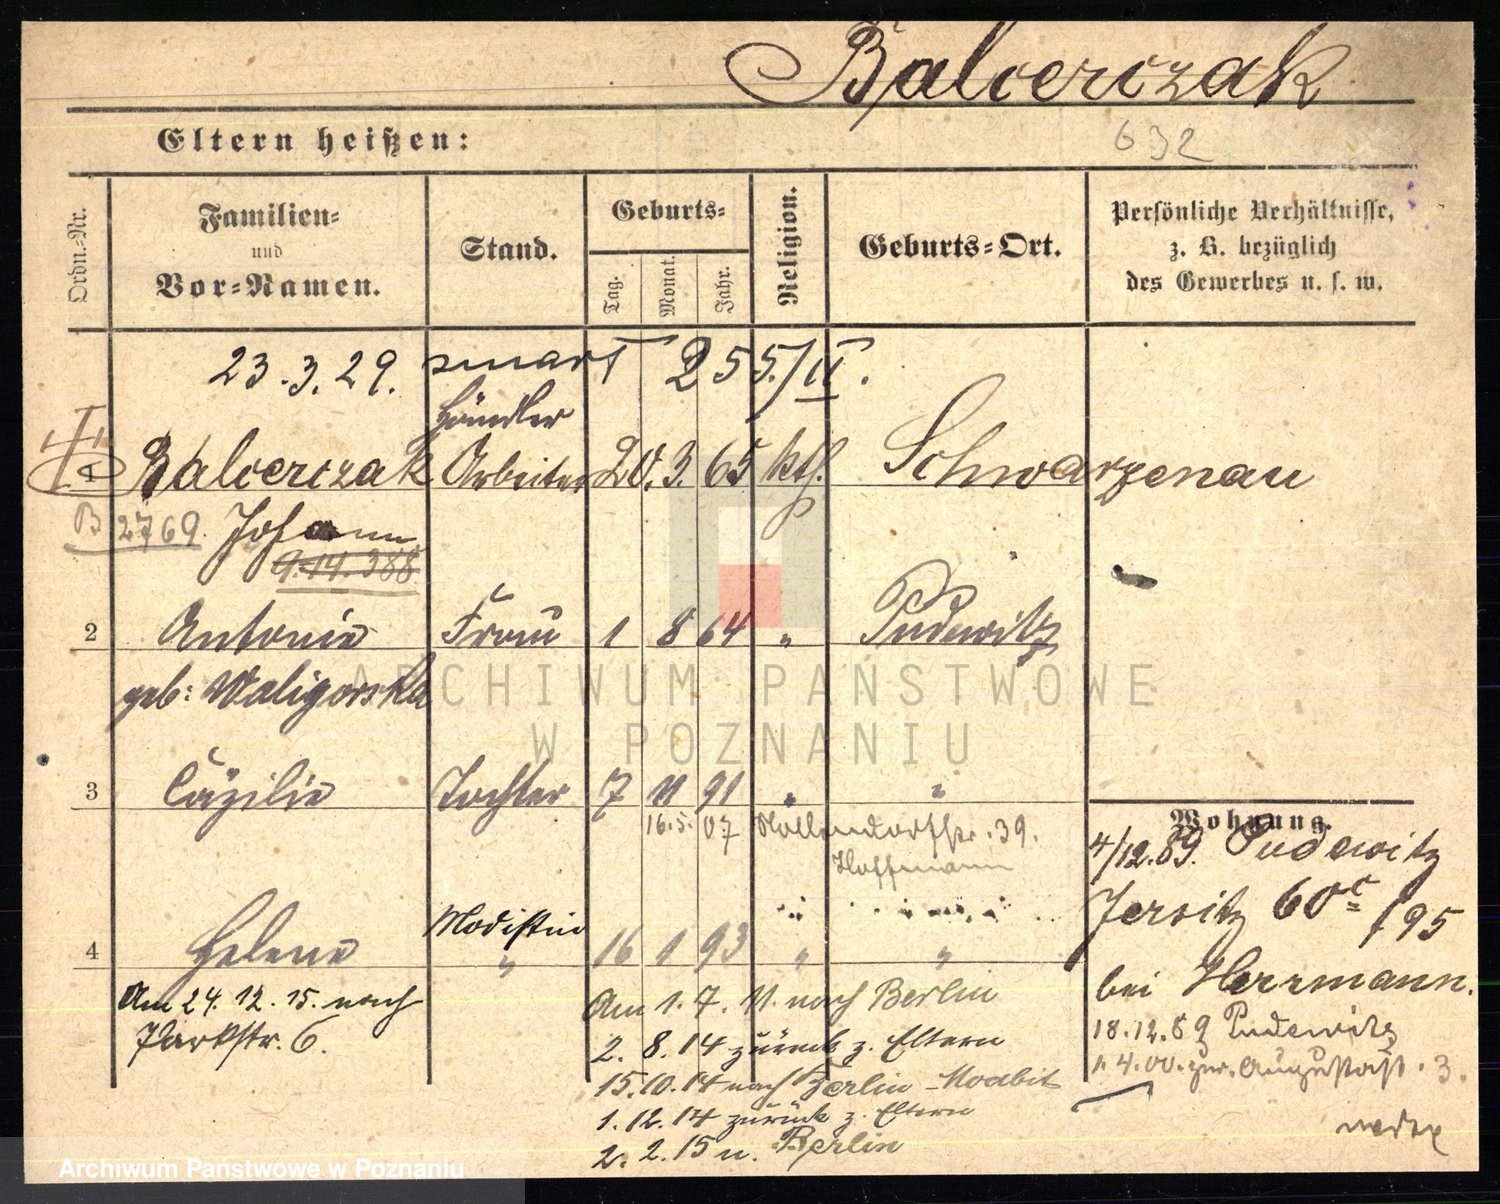 Balcerczak
Eltern heißen:
632
Ordn.-Nr.
Familien-
und
Vor-Namen.
Stand.
Geburts-
Tag.
Monat.
Jahr.
Religion.
Geburts-Ort.
Persönliche Verhältnisse,
z. B. bezüglich
des Gewerbes u. s. w.
23.3.29. zmarł 255./II.
Händler
1 Balcerczak Arbeiter 20. 3. 65 kth. Schwarzenau
B 2769. Johann
9.14.388
2 Antonie Frau 1 8 64 " Pudewitz
geb: Waligorska
ARCHIWUM PAŃSTWOWE
W POZNANIU
3 Cäzilie Tochter 7 11 91 " "
16.5. 07 Nollendorfstr. 39.
Hoffmann
Modistin
4 Helene " 16 1 93 " "
Am 24.12.15. nach
Parkstr. 6.
Am 1.7.11. nach Berlin
2. 8. 14 zurück z. Eltern
15.10.14 nach Berlin-Moabit
1.12.14 zurück z. Eltern
2. 2. 15 n. Berlin
Wohnung.
4/12.89. Pudewitz
Jersitz 60c /95
bei Herrmann.
18.12.89 Pudewitz
1.4.00. Augustastr. 3.
Archiwum Państwowe w Poznaniu